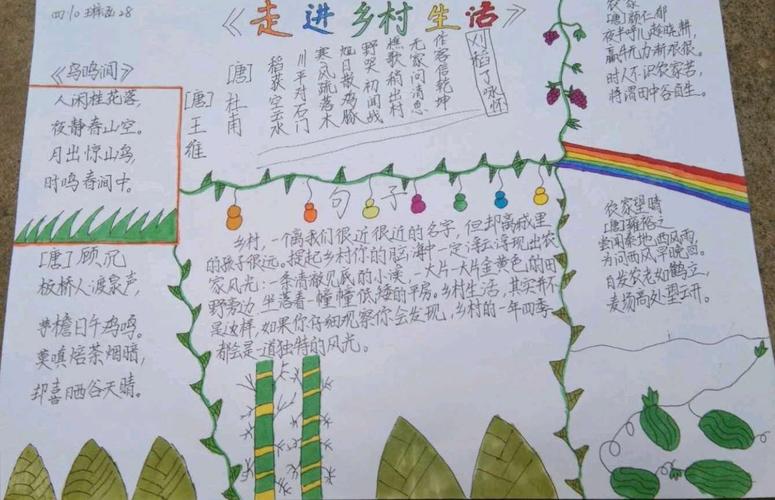 《走进乡村生活》
《鸟鸣涧》
人闲桂花落,
夜静春山空。
月出惊山鸟,
时鸣春涧中。
[唐]王维
[唐]顾况
板桥人渡泉声,
茅檐日午鸡鸣。
莫嗔焙茶烟暗,
却喜晒谷天晴。
刈稻了咏怀
[唐]杜甫
稻获空云水
川平对石门
寒风疏落木
旭日散鸡豚
野哭初闻战
樵歌稍出村
无家问消息
作客信乾坤
句子
乡村,一个离我们很近很近的名字,但却离城里
的孩子很远。提起乡村你的脑海中一定浮现出农
家风光:一条清澈见底的小溪,一大片一大片金黄色的田
野旁边,坐落着一幢幢低矮的平房。乡村生活,其实并不
是这样,如果你仔细观察你会发现,乡村的一年四季
都会是一道独特的风光。
农家
[唐]颜仁郁
夜半呼儿趁晓耕,
羸牛无力渐艰难。
时人不识农家苦,
将谓田中谷自生。
农家望晴
[唐]雍裕之
尝闻秦地西风雨,
为问西风早晚回。
白发农老如鹤立,
麦场高处望云开。